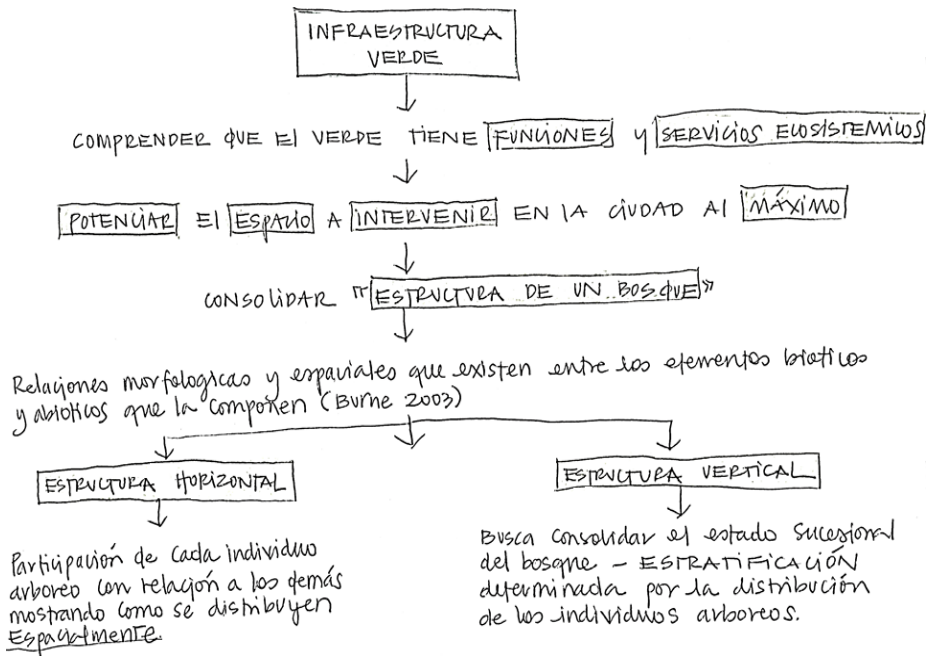 INFRAESTRUCTURA
VERDE
COMPRENDER QUE El VERDE TIENE FUNCIONES Y SERVICIOS ECOSISTEMICOS
POTENCIAR El ESPACIO A INTERVENIR EN lA CIUDAD Al MÁXIMO
CONSOLIDAR "ESTRUCTURA DE UN BOSQUE"
Relaciones morfologicas y espaciales que existen entre los elementos bioticos
y abioticos que la componen (Burne 2003)
ESTRUCTURA HORIZONTAL
ESTRUCTURA VERTICAL
Participación de cada individuo
arboreo con relación a los demás
mostrando como se distribuyen
Espacialmente.
Busca consolidar el estado sucesional
del bosque – ESTRATIFICACIÓN
determinada por la distribución
de los individuos arboreos.